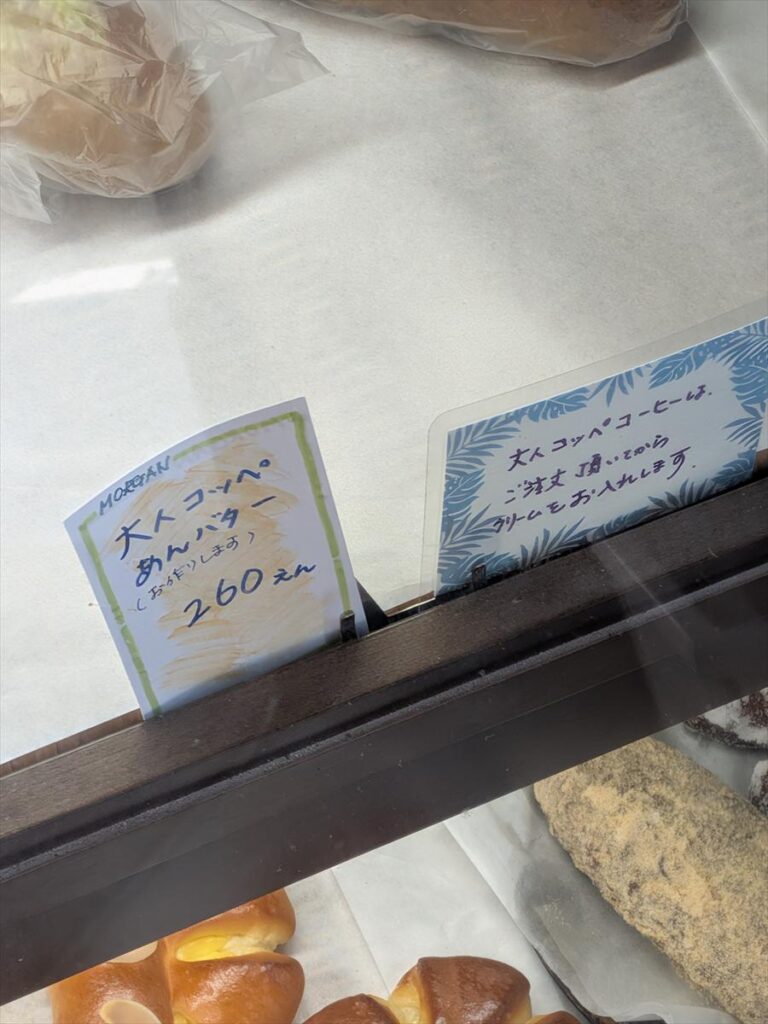 MORGAN
大人コッペ
あんバター
(お作りします)
260えん
大人コッペコーヒーは、
ご注文頂いてから
クリームをお入れします。